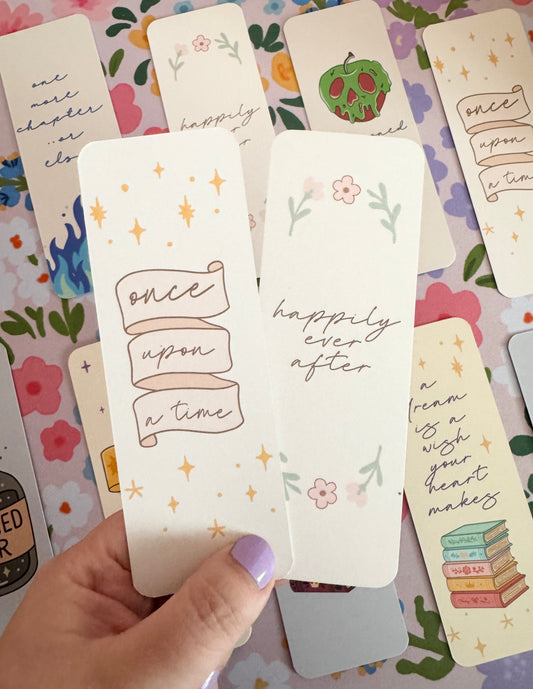 one
more
chapter
...or
els
happily
er
ned
once
upon
a time
once
upon
a time
happily
ever
after
a
dream
is a
wish
your
heart
makes
ED
R